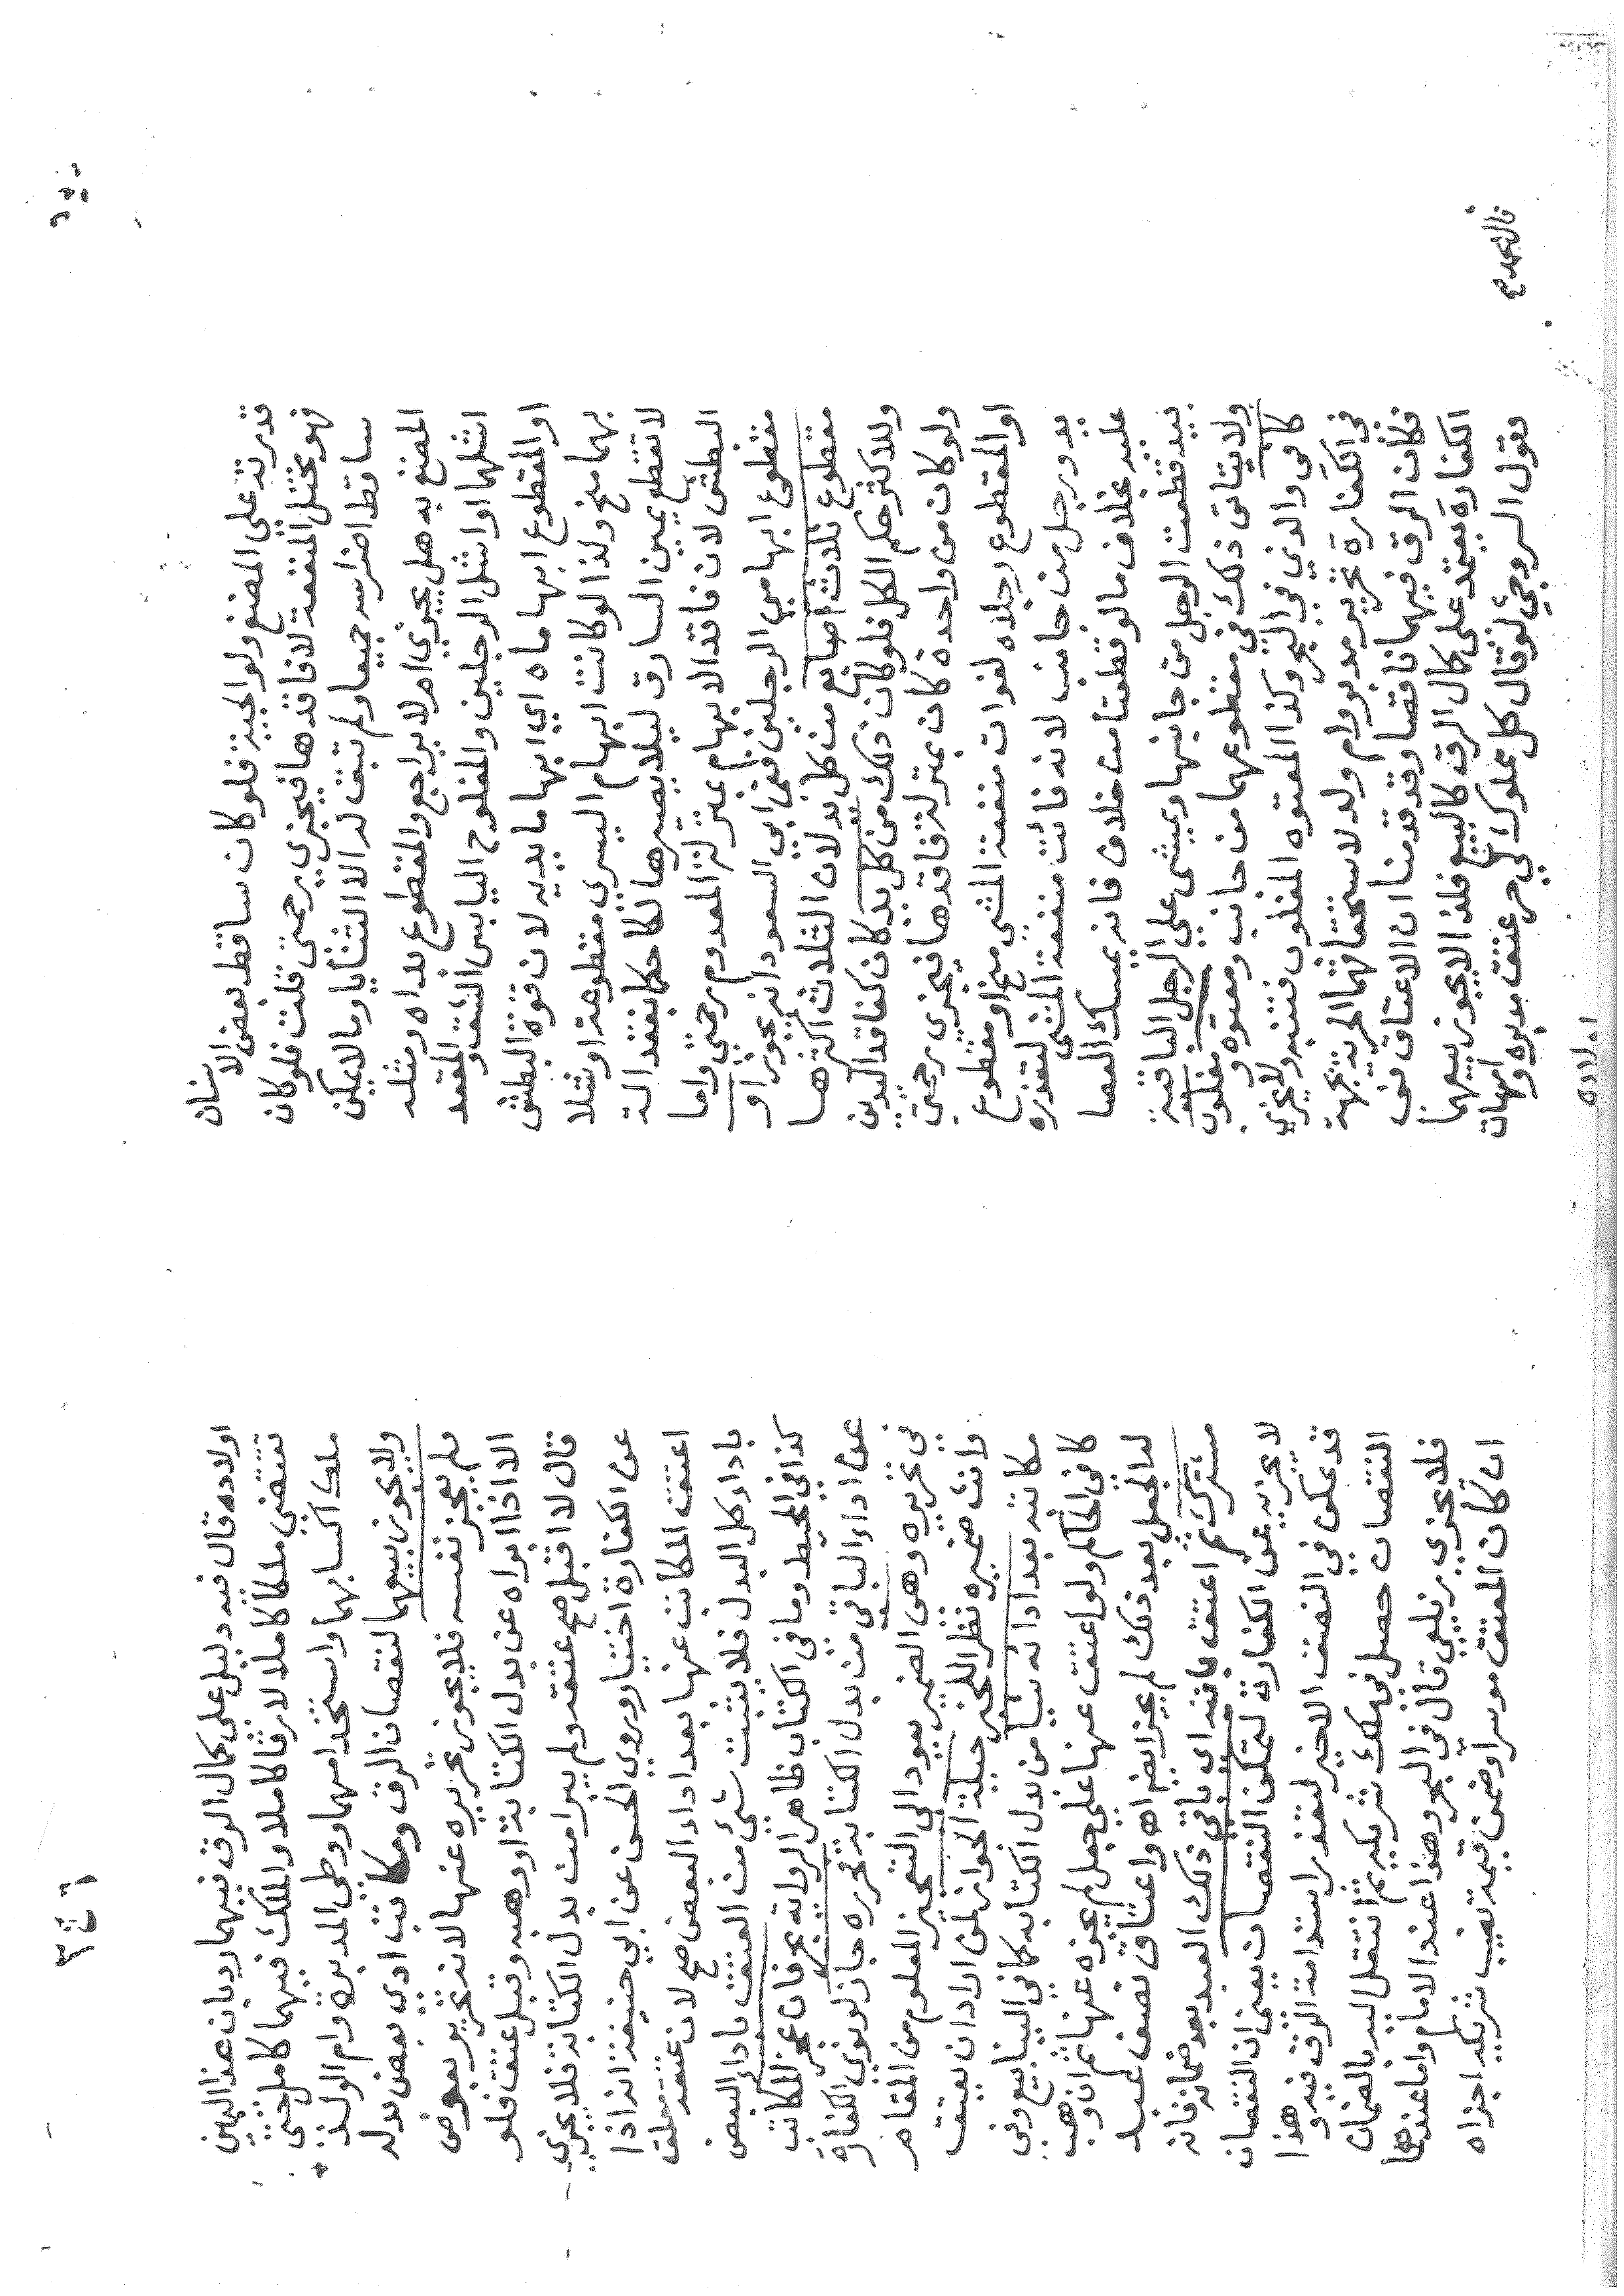 قدرته على المضغ ولو الحبية فلوكان ساقط بعض الاسنان
فهو مختل المنفعة لا فاقدها فيجزي رحمتى قلت فلوكان
ساقط اضراسه جميعا ولم تبق له الا الثنايا وما لا يمكن
المضغ به هل يجزي ام لا يراجع والمقطوع يداه ومثله
اشلهما او اشل الرجلين والمفلوح اليابس الشق والمقعد
او المقطوع ابهاماه اي ابهاما يديه لان قوة البطش
بهما منح ولذا لو كانت ابهام اليسرى مقطوعة او شلا
لا تقطع يمين السارق ليلا يصير هالكا حكما بفقد الة
البطش لان فاقد الابهام بمنزلة المعدوم رحمتي واما
مقطوع ابهامي الرجلين ففي ابي السعود انه يجوز او
مقطوع ثلاث اصابع من كل يد لان الثلاث اكثرها
وللاكثر حكم الكل فلو كان ذلك من كل يد كان كفاقد اليدين
ولو كان من واحدة كان بمنزلة فاقدها فيجزي رحمتى
او المقطوع رجلاه لفوات منفعة المشي منح او مقطوع
يد ورجل من جانب لانه فائت منفعة المشي لتعذره
عليه بخلاف ما لو قطعتا من خلاف فانه يمسك العصا
بيد قطعت الرجل من جانبها ويمشي على الرجل الباقية
ولا يتاتى ذلك في مقطوعهما من جانب ومعتوه و مغلوب
كافي والذي في البحر وكذا المعتوه المغلوب فتنبه ولا يجزي
في الكفارة تحرير مدبر وام ولد لاستحقاقهما الحرية بجهة
فكان الرق فيهما ناقصا وقد قدمنا ان الاعتاق في
الكفارة يعتمد على كمال الرق كالبيع فلذا لا يجوز بيعهما
بقول السروجي لو قال كل مملوك لي حر عتق مدبروه وامهات
اولاده
اولاده قال فيه دليل على كمال الرق فيهما رد بان هذا اليمين
تقتضي ملكا كاملا لا رقا كاملا والملك فيهما كامل حتى
ملك اكسابهما واستخدامهما ووطى المدبرة وام الولد
ولا يجوز بيعهما لنقصان الرق ومكاتب ادى بعض بدله
ولم يعجز نفسه فلا يجوز تحريره عنها لانه تحرير بعوض
الا اذا ابراه عن بدل الكتابة او وهبه وقبل عتق فلو
قال لا اقبل صح عتقه ولم يبرا من بدل الكتابة فلا يجزي
عن الكفارة اختيار وروي الحسن عن ابي حنيفة انه اذا
اعتق المكاتب عنها بعد اداء البعض صح لان عتقه معلق
باداء كل البدل فلا يثبت شئ من العتق باداء البعض
كذا في المحيط وما في الكتاب ظاهر الرواية بحر فان عجز المكاتب
عن اداء الباقي من بدل الكتابة تحرره جاز لو نوى الكفارة
في تحريره وهي الضمير يعود الى التعجيز المعلوم من المقام
وانث ضميره نظرا للخبر حيلة الجواز لمن اراد ان يعتق
مكاتبه بعد ادائه شيا من بدل الكتابة كما في الينابيع وفي
كافي الحاكم ولو اعتق عنها على جعل لم يجزه عنها ثم ان وهب
له الجعل بعد ذلك لم يجز ايضا اه واعتاق نصف عبد
مشترك ثم اعتق باقيه اي باقي ذلك العبد بعد ضمانه فانه
لا يجزيه عن الكفارة لتمكن النقصان يعني ان النقصان
قد تمكن في النصف الاخير لتعذر استدامة الرق فيه و هذا
النقصان حصل في ملك شريكه ثم انتقل اليه بالضمان
فلا يجزي زيلعي قال في البحر وهذا عند الامام واما عندهما
ان كان المعتق موسرا وضمن قيمة نصيب شريكه اجزاه